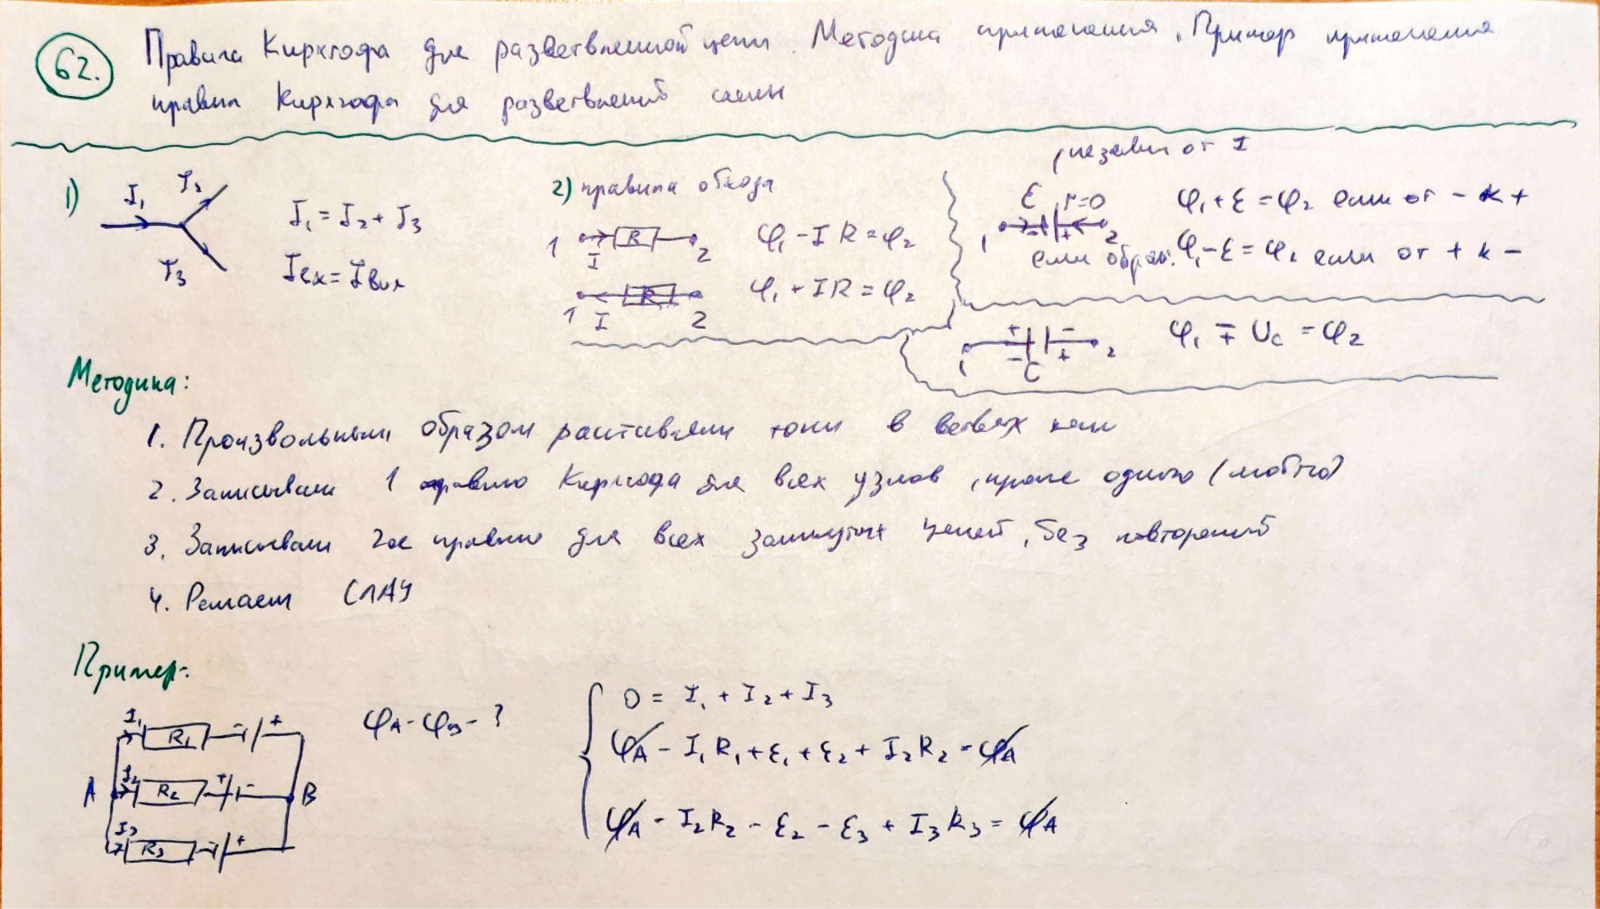 62. Правила Кирхгофа для разветвленной цепи. Методика применения. Пример применения
правил Кирхгофа для разветвленной схемы
1) I₁ I₂ I₃
I₁ = I₂ + I₃
Iвх = Iвых
2) правила обхода
1 I R 2 φ₁ - IR = φ₂
1 I R 2 φ₁ + IR = φ₂
, независим от I
ℰ, r=0 1 - + 2 φ₁ + ℰ = φ₂ если от - к +
если φ₁ - ℰ = φ₂ если от + к -
+ - 1 - C + 2 φ₁ ∓ Uc = φ₂
Методика:
1. Произвольным образом токи в ветвях
2. Записываем 1 правило Кирхгофа для всех узлов, кроме одного (любого)
3. Записываем 2ое правило для всех замкнутых цепей, без повторений
4. Решаем СЛАУ
Пример:
I₁ R₁ - +
A I₂ R₂ + - B
I₃ R₃ - +
φA - φB - ?
0 = I₁ + I₂ + I₃
φA - I₁R₁ + ℰ₁ + ℰ₂ + I₂R₂ = φA
φA - I₂R₂ - ℰ₂ - ℰ₃ + I₃R₃ = φA